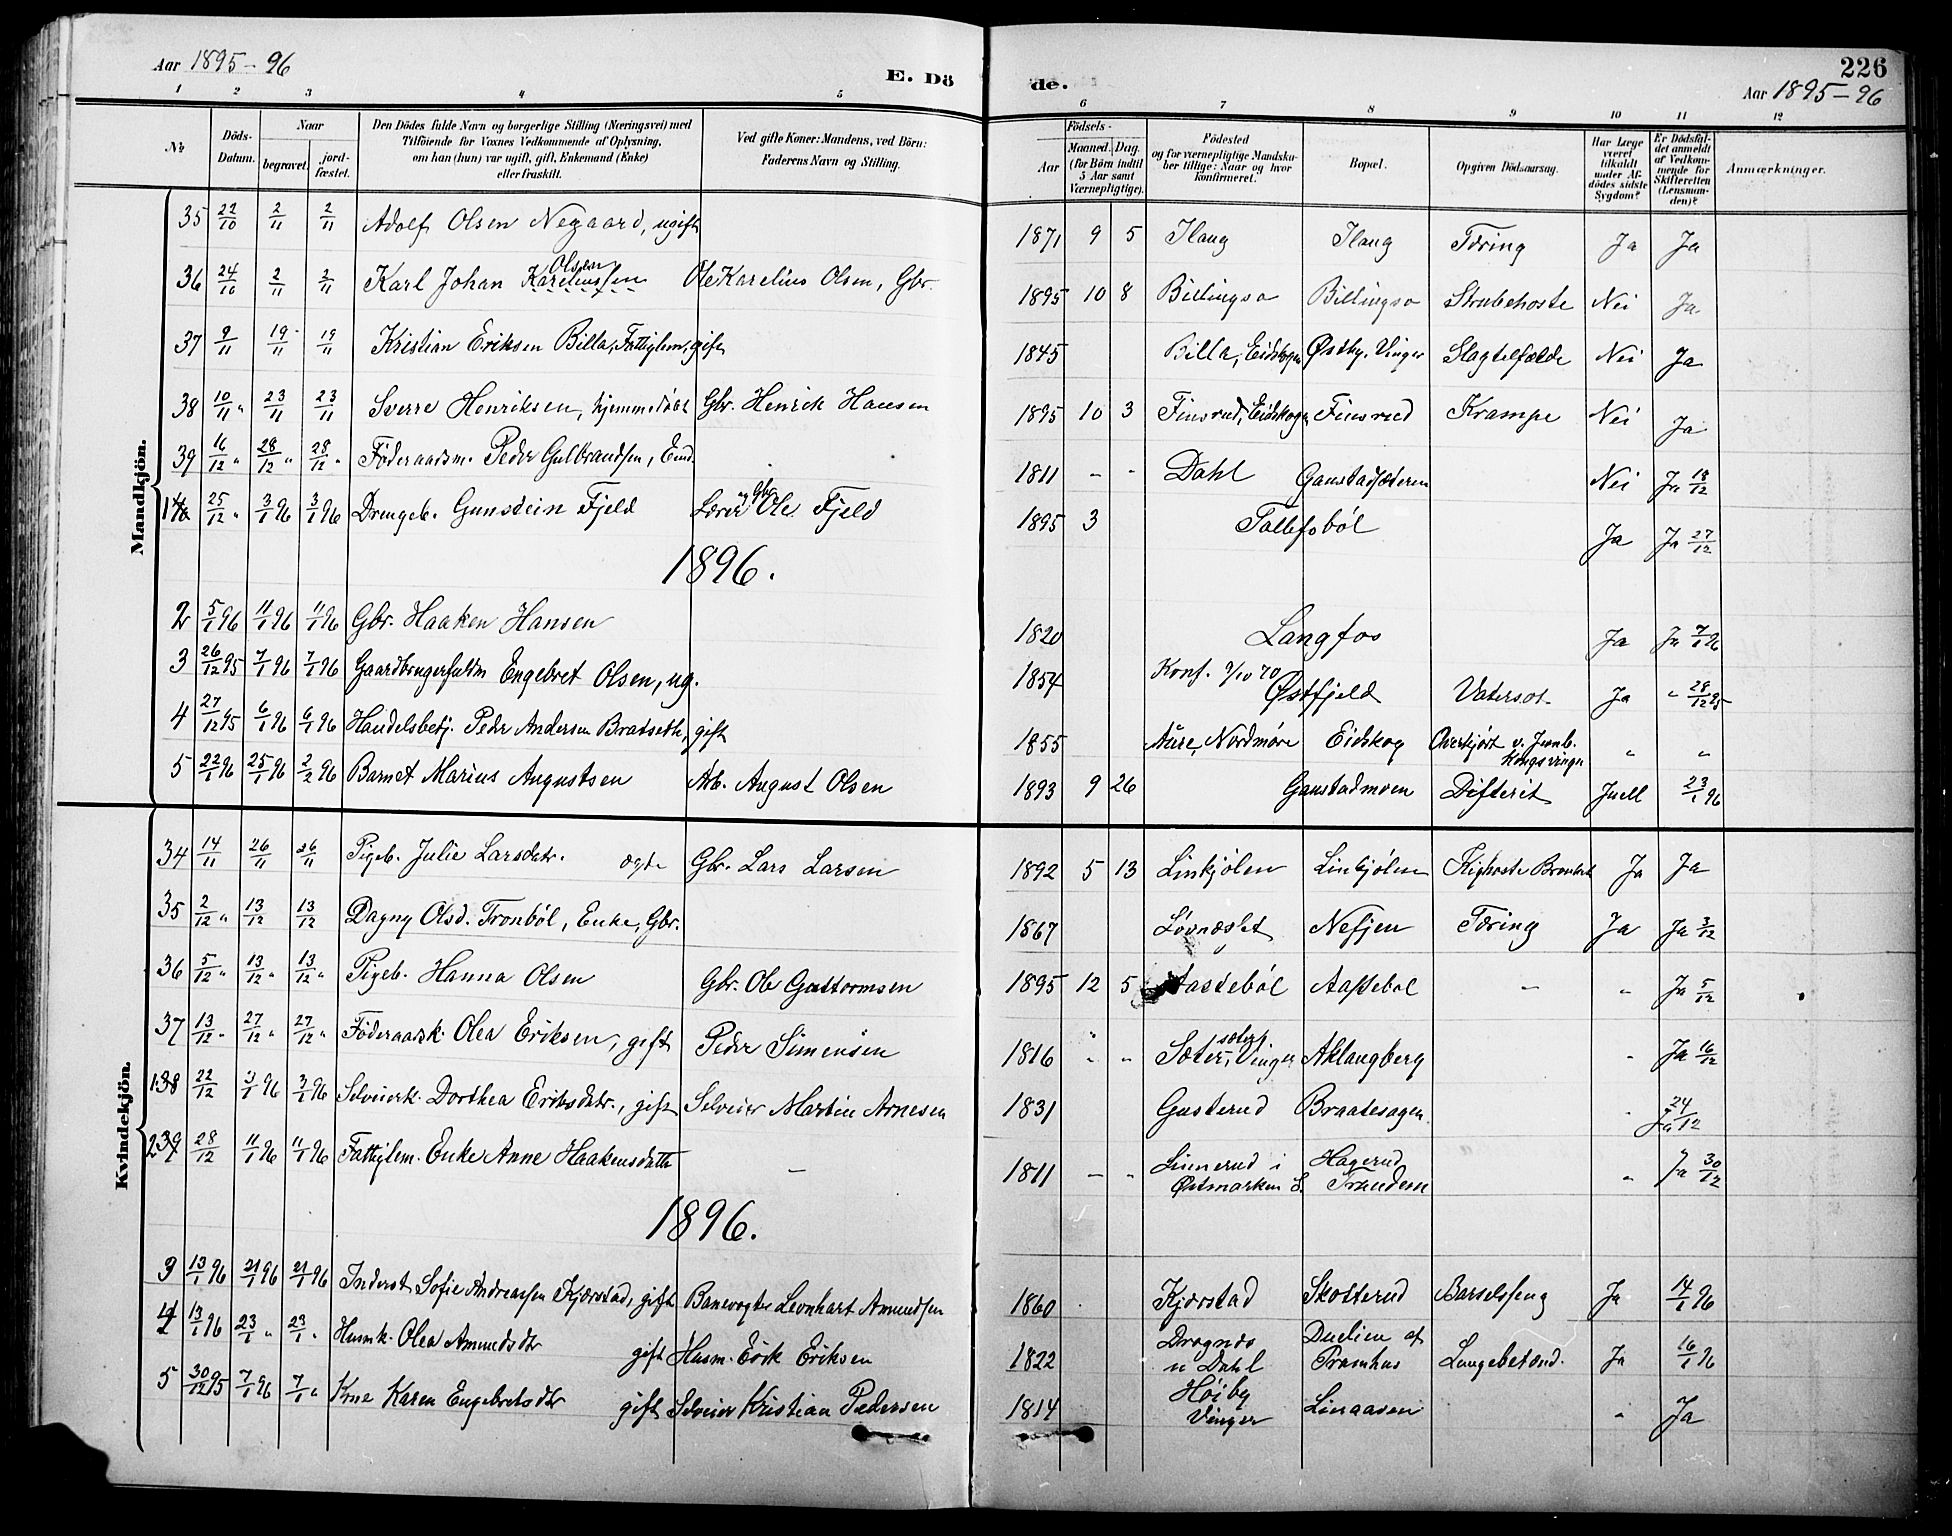 Aar 1895-96
E. Dö
de.
226
Aar 1895-96
1 2 3 4 5 6 7 8 9 10 11 12
No
Döds-Datum.
Naar
begravet.
jord-fæstet.
Den Dödes fulde Navn og borgerlige Stilling (Næringsvei) med
Tilföiende for Voxnes Vedkommende af Oplysning,
om han (hun) var ugift, gift, Enkemand (Enke)
eller fraskilt.
Ved gifte Koner: Mandens, ved Börn:
Faderens Navn og Stilling.
Födsels-
Aar
Maaned. Dag.
(for Börn indtil
5 Aar samt
Værnepligtige).
Födested
og for værnepligtige Mandskaber tillige: Naar og hvor
konfirmeret.
Bopæl.
Opgiven Dödsaarsag.
Har Læge været tilkaldt under Afdödes sidste Sygdom?
Er Dödsfaldet anmeldt af Vedkommende for Skifteretten (Lensmanden)?
Anmærkninger.
Mandkjön.
35 22/10 2/11 2/11 Adolf Olsen Negaard, ugift 1871 9 5 Ilaug Ilaug Tæring Ja Ja
36 24/10 2/11 2/11 Karl Johan Kareliussen Olsen Ole Karelius Olsen, Gbr. 1895 10 8 Billingsø Billingsø Strubehoste Nei Ja
37 9/11 19/11 19/11 Kristian Eriksen Billa, Fattiglem, gift 1845 Billa, Eidskogen Østby, Vinger Slagtelfælde Nei Ja
38 10/11 " 23/11 23/11 Sverre Henriksen, hjemmedøbt Gbr. Henrik Hansen 1895 10 3 Finsrud, Eidskogen Finsrud Krampe Nei Ja
39 16/12 " 28/12 " 28/12 " Föderaadsm. Peder Gulbrandsen, Enk. 1811 - - Dahl Gaustadsæteren Nei Ja 18/12
1 40 25/12 " 3/1 96 3/1 96 Drengeb. Gunstein Fjeld Lærer og Gbr Ole Fjeld 1895 3 Tollefsböl Ja Ja 27/12
1896.
2 5/1 96 11/1 96 11/1 96 Gbr. Haaken Hansen 1820 Langfos Ja Ja 7/1 96
3 26/12 95 7/1 96 7/1 96 Gaardbrugerfuldm Engebret Olsen, ug. 1854 Konf. 9/10 70 Østfjeld Vatersot. Ja " 28/12 95
4 27/12 95 6/1 96 6/1 96 Handelsbetj. Peder Andersen Bratseth, gift 1855 Aure, Nordmøre Eidskog Overkjørt v. Jernb. Kongsvinger " "
5 22/1 96 25/1 96 2/2 96 Barnet Marius Augustsen Arb. August Olsen 1893 9 26 Gaustadmoen Difterit Juell 23/1 96
Kvindekjön.
34 14/11 26/11 26/11 Pigeb. Julie Larsdatr. ægte Gbr. Lars Larsen 1892 5 13 Linkjølen Linkjølen Kighoste Bronkit Ja Ja
35 2/12 " 13/12 13/12 Dagny Olsd. Tronböl, Enke, Gbr. 1867 Løvnæslet Nefjen Tæring Ja Ja 3/12
36 5/12 " 13/12 " 13/12 " Pigeb. Hanna Olsen Gbr. Ole Guttormsen 1895 12 5 Aastebøl Aastebøl - " Ja 5/12
37 13/12 " 27/12 " 27/12 " Föderaadsk. Olea Eriksen, gift Peder Simensen 1816 " " Sæter, Vinger Aklangberg " Ja 16/12
1 38 22/12 3/1 96 3/1 96 Selveierk. Dorthea Eriksdatr., gift Selveier Martin Arnesen 1831 Gusterud Braatesagen " Ja 24/12
2 39 28/12 11/1 96 11/1 96 Fattiglem. Enke Anne Haakensdatter - 1811 - " Linnerud i Østmarken S. Hagerud Trandem " Ja 30/12
1896.
3 13/1 96 21/1 96 21/1 96 Inderst Sofie Andreassen Kjørstad, gift Banevogter Leonhart Amundsen 1860 Kjørstad Skotterud Barselseng Ja 14/1 96
4 13/1 96 23/1 " 23/1 " Husmk. Olea Amundsdtr gift Husm. Erik Eriksen 1822 Drognæs u Dahl Duelien af Pramhus Lungebetænd. Ja 16/1 96
5 30/12 95 7/1 96 7/1 " Kone Karen Engebretsdtr gift Selveier Kristian Pedersen 1814 Høiby Vinger Linaasen " Ja